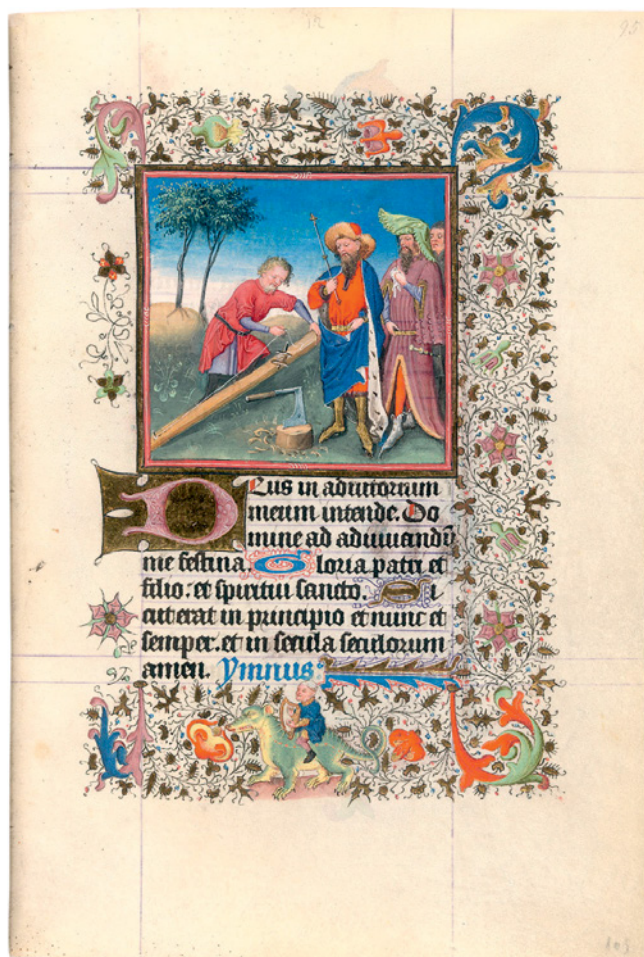 95
Deus in adiutorium
meum intende. Do
mine ad adiuuandū
me festina. Gloria patri et
filio. et spiritui sancto. Si
cut erat in principio et nunc et
semper. et in secula seculorum
amen. Ymnus